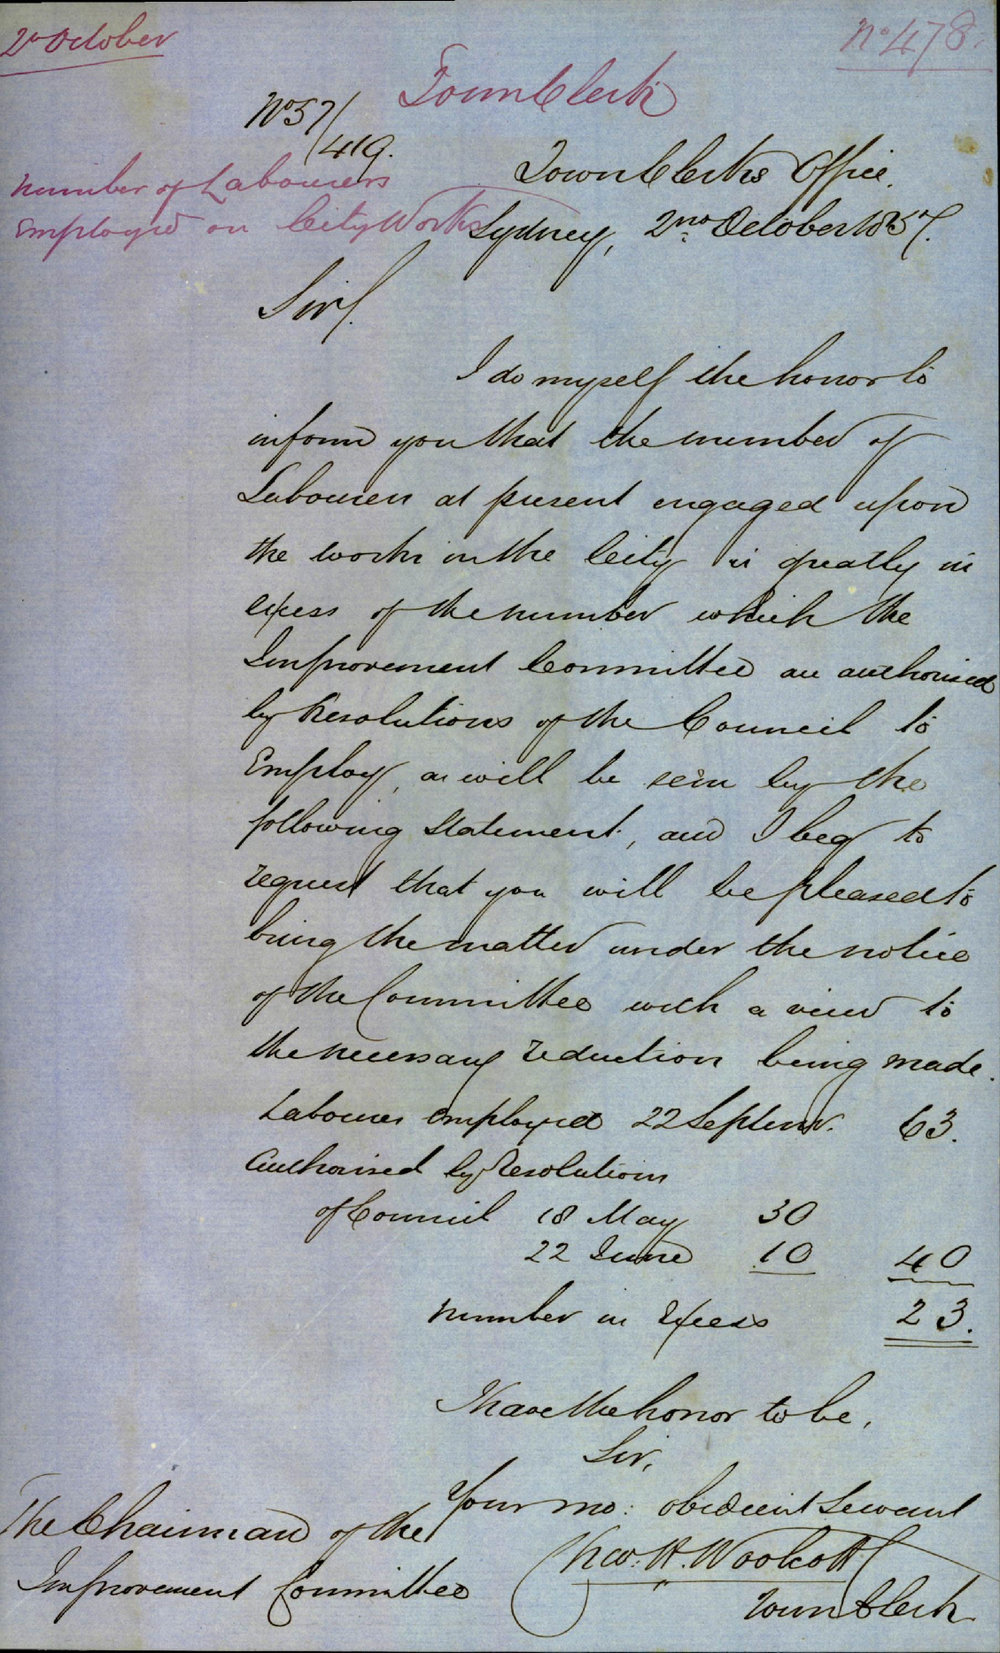 2nd October
No 478.
Town Clerk
No 57/
419.
Number of Labourers
Employed on City Works
Town Clerks Office.
Sydney, 2nd October 1857.
Sir,
I do myself the honor to
inform you that the number of
Labourers at present engaged upon
the works in the City is greatly in
excess of the number which the
Improvement Committee are authorised
by Resolutions of the Council to
Employ, as will be seen by the
following Statement, and I beg to
request that you will be pleased to
bring the matter under the notice
of the Committee with a view to
the necessary reduction being made.
Labourers employed 22 Septemr. 63.
Authorised by Resolutions
of Council 18 May 30
22 June 10 40
Number in Excess 23.
I have the honor to be,
Sir,
Your mo: obedient Servant
Chas. H. Woolcott
Town Clerk
The Chairman of the
Improvement Committee